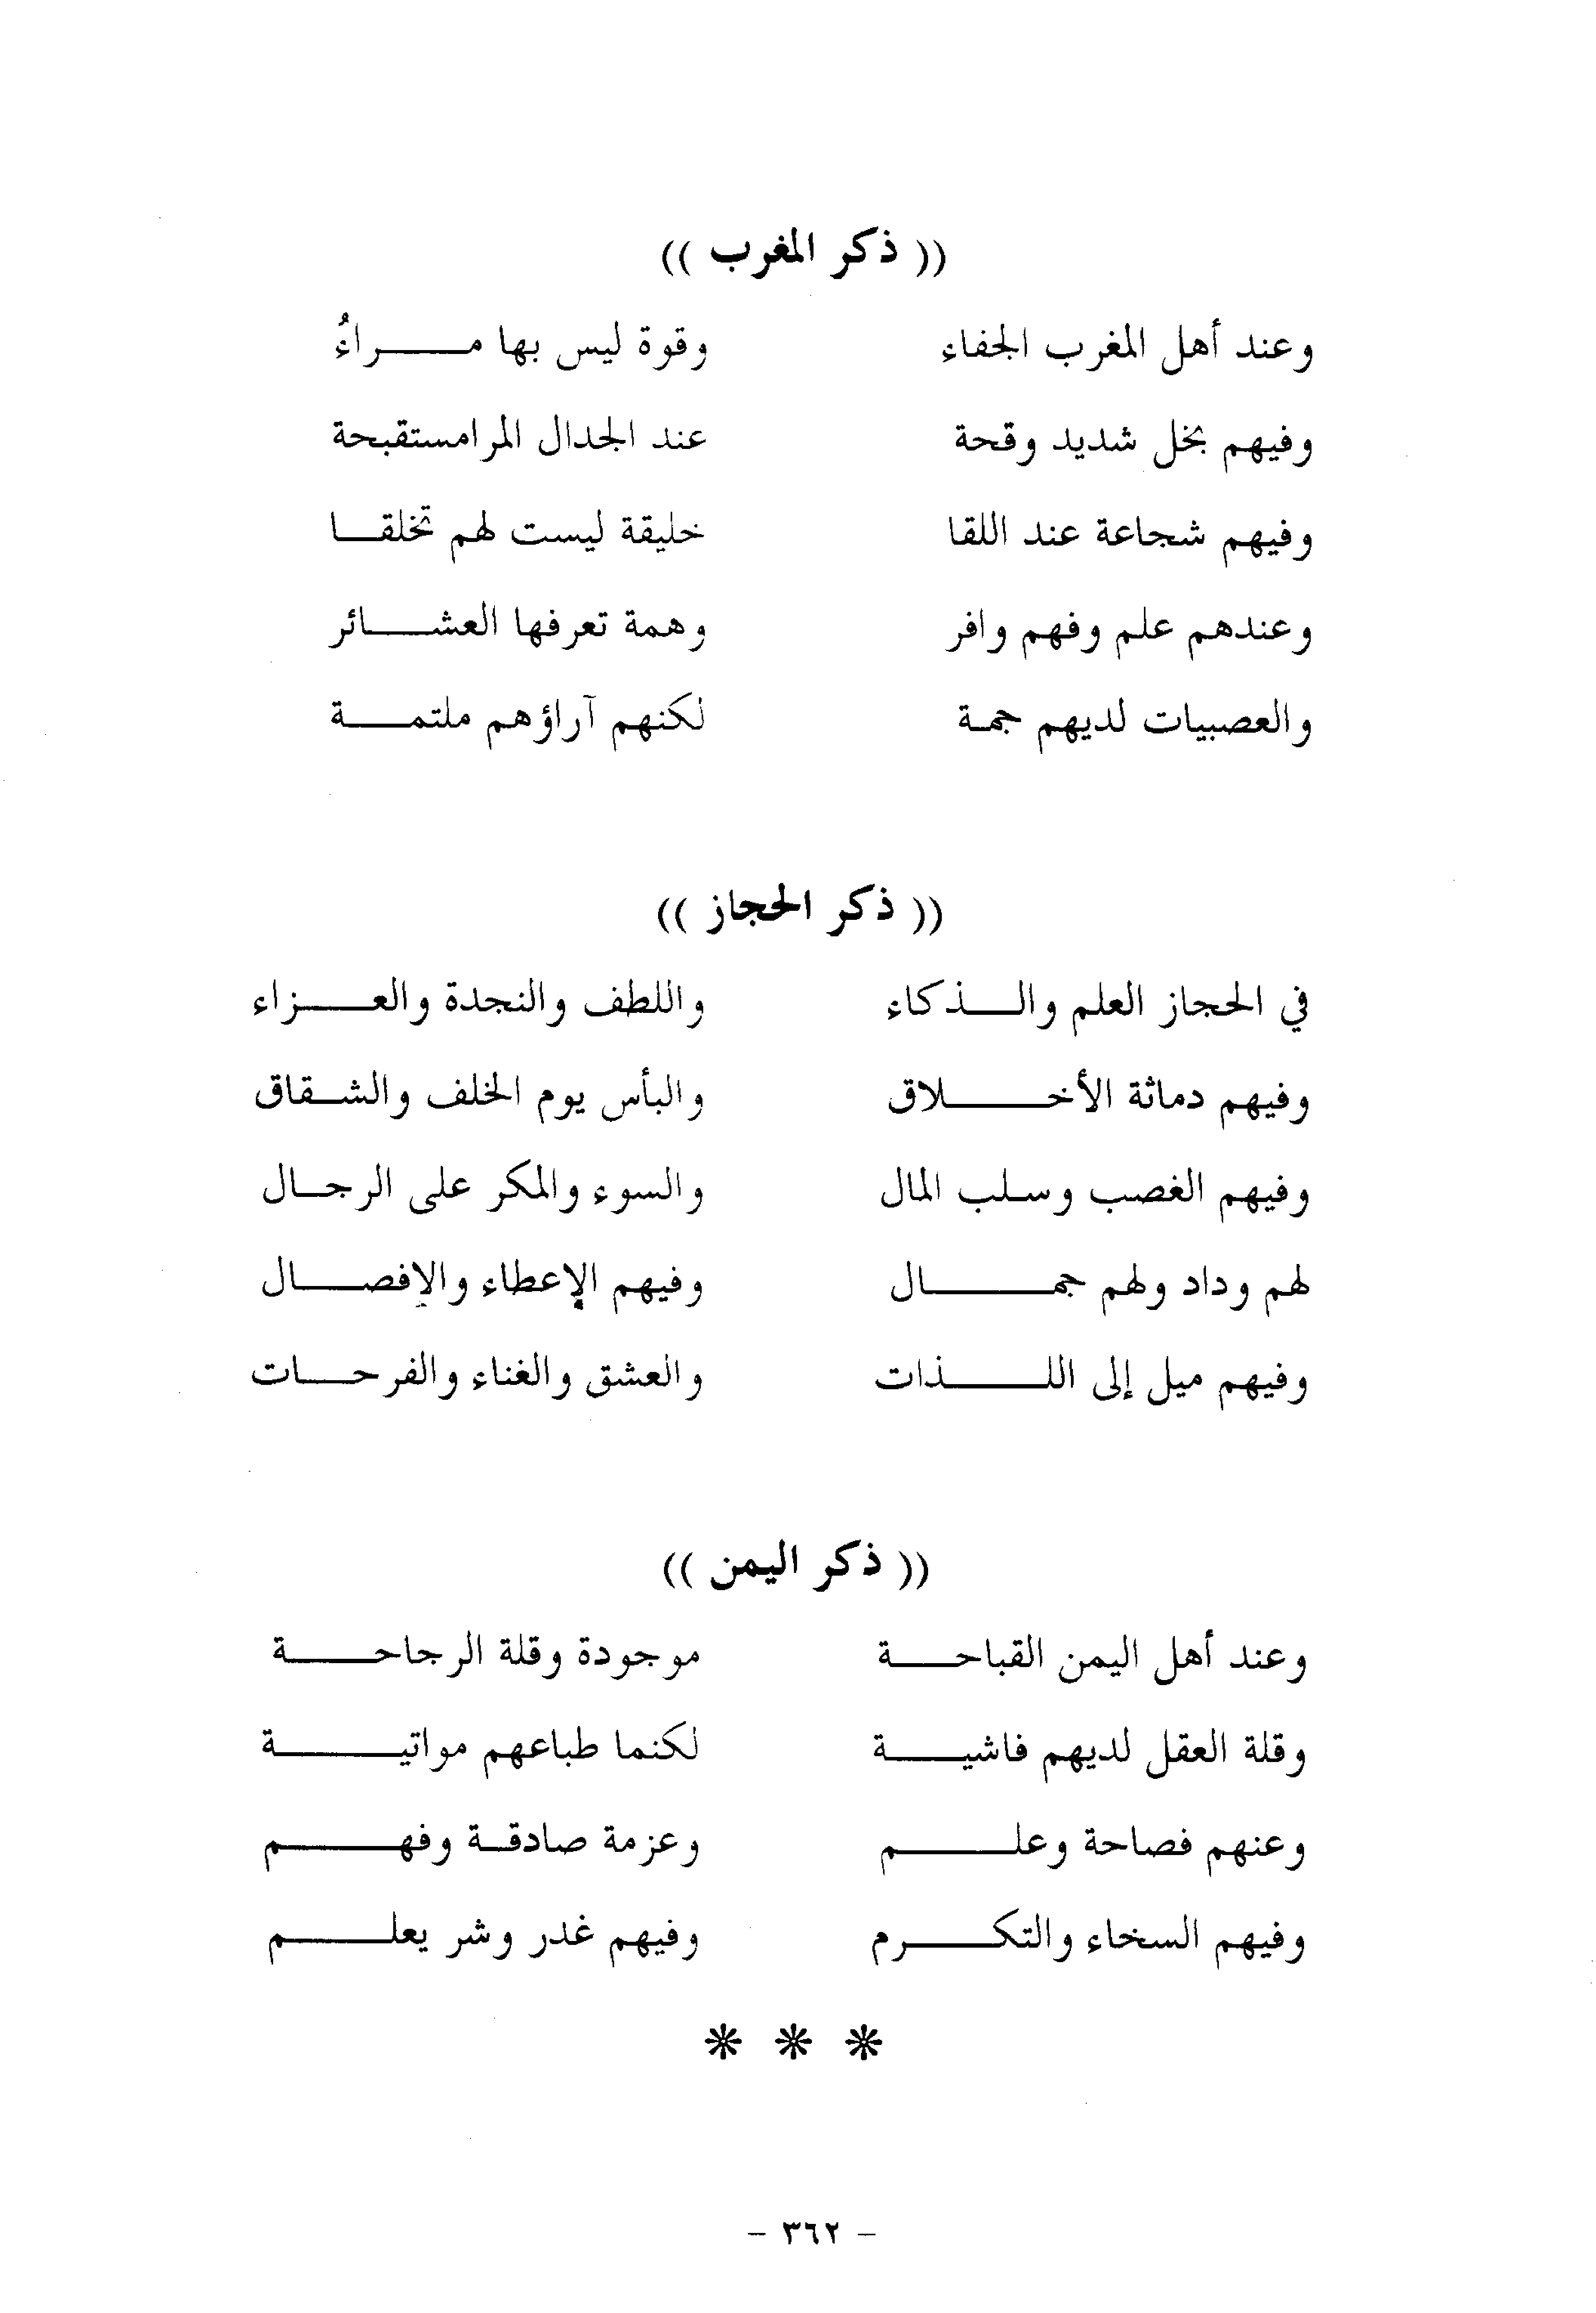 (( ذكر المغرب ))
وعند أهل المغرب الجفاء وقوة ليس بها مراءُ
وفيهم بخل شديد وقحة عند الجدال المرامستقبحة
وفيهم شجاعة عند اللقا خليقة ليست لهم تخلقا
وعندهم علم وفهم وافر وهمة تعرفها العشائر
والعصبيات لديهم جمة لكنهم آراؤهم ملتمة
(( ذكر الحجاز ))
في الحجاز العلم والذكاء واللطف والنجدة والعزاء
وفيهم دماثة الأخلاق والبأس يوم الخلف والشقاق
وفيهم الغصب وسلب المال والسوء والمكر على الرجال
لهم وداد ولهم جمال وفيهم الإعطاء والإفصال
وفيهم ميل إلى اللذات والعشق والغناء والفرحات
(( ذكر اليمن ))
وعند أهل اليمن القباحة موجودة وقلة الرجاحة
وقلة العقل لديهم فاشية لكنما طباعهم مواتية
وعنهم فصاحة وعلم وعزمة صادقة وفهم
وفيهم السخاء والتكرم وفيهم غدر وشر يعلم
* * *
- ٣٦٢ -